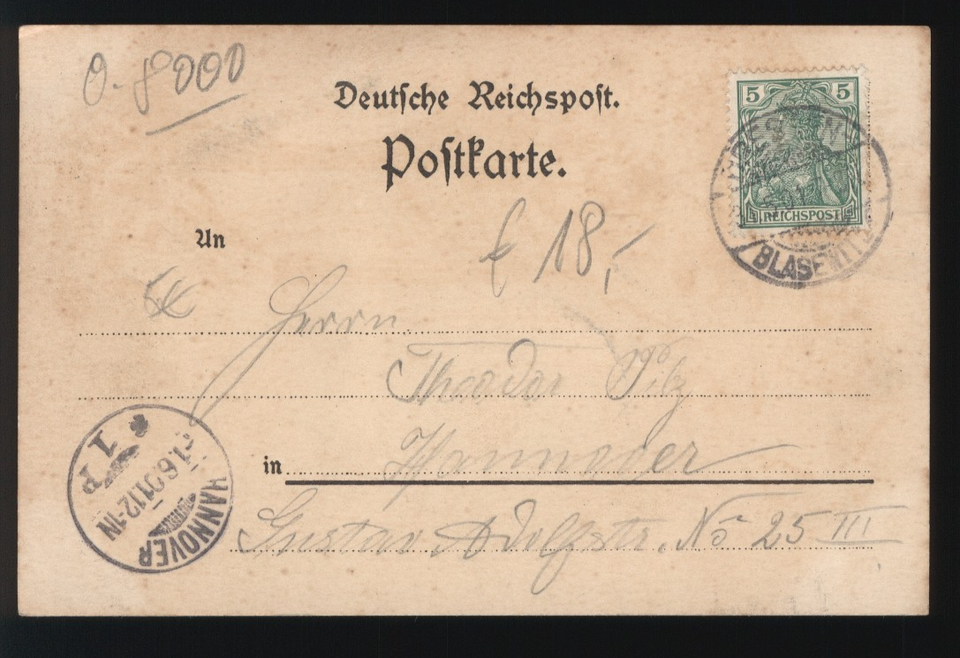 0.-8000
Deutsche Reichspost.
Postkarte.
5 5
REICHSPOST
BLASEWITZ
An
€ 18,-
5€
Herrn
Theodor Pilz
in Hannover
Gustav Adolfstr. No 25 III
HANNOVER
1.6.01.12-1N
1 P